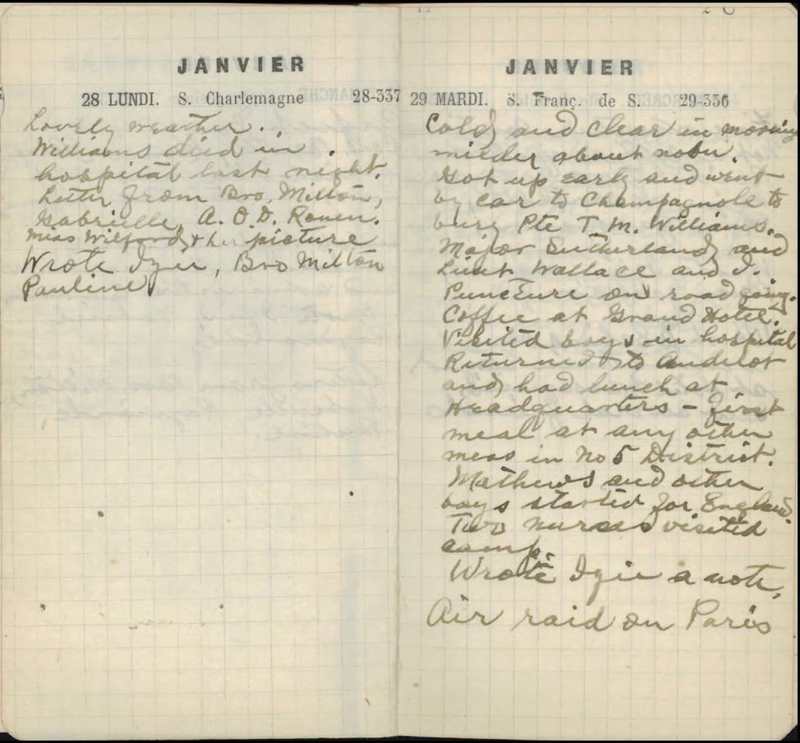 JANVIER
28 LUNDI. S. Charlemagne 28-337
Lovely weather..
Williams died in
hospital last night.
Letter from Bro. Milton,
Gabrielle, A. O. D. Rouen.
Miss Wilford & her picture
Wrote Izie, Bro Milton
Pauline
JANVIER
29 MARDI. S. Franç. de S. 29-336
Cold and clear in morning
milder about noon.
Got up early and went
by car to Champagnole to
bury Pte T. M. Williams.
Major Sutherland and
Lieut Wallace and I.
Puncture on road going.
Coffee at Grand Hotel.
Visited boys in hospital
Returned to Andelot
and had lunch at
Headquarters - first
meal at any other
mess in No 5 District.
Mathews and other
boys started for England.
Two nurses visited
camp.
Wrote Izie a note.
Air raid on Paris